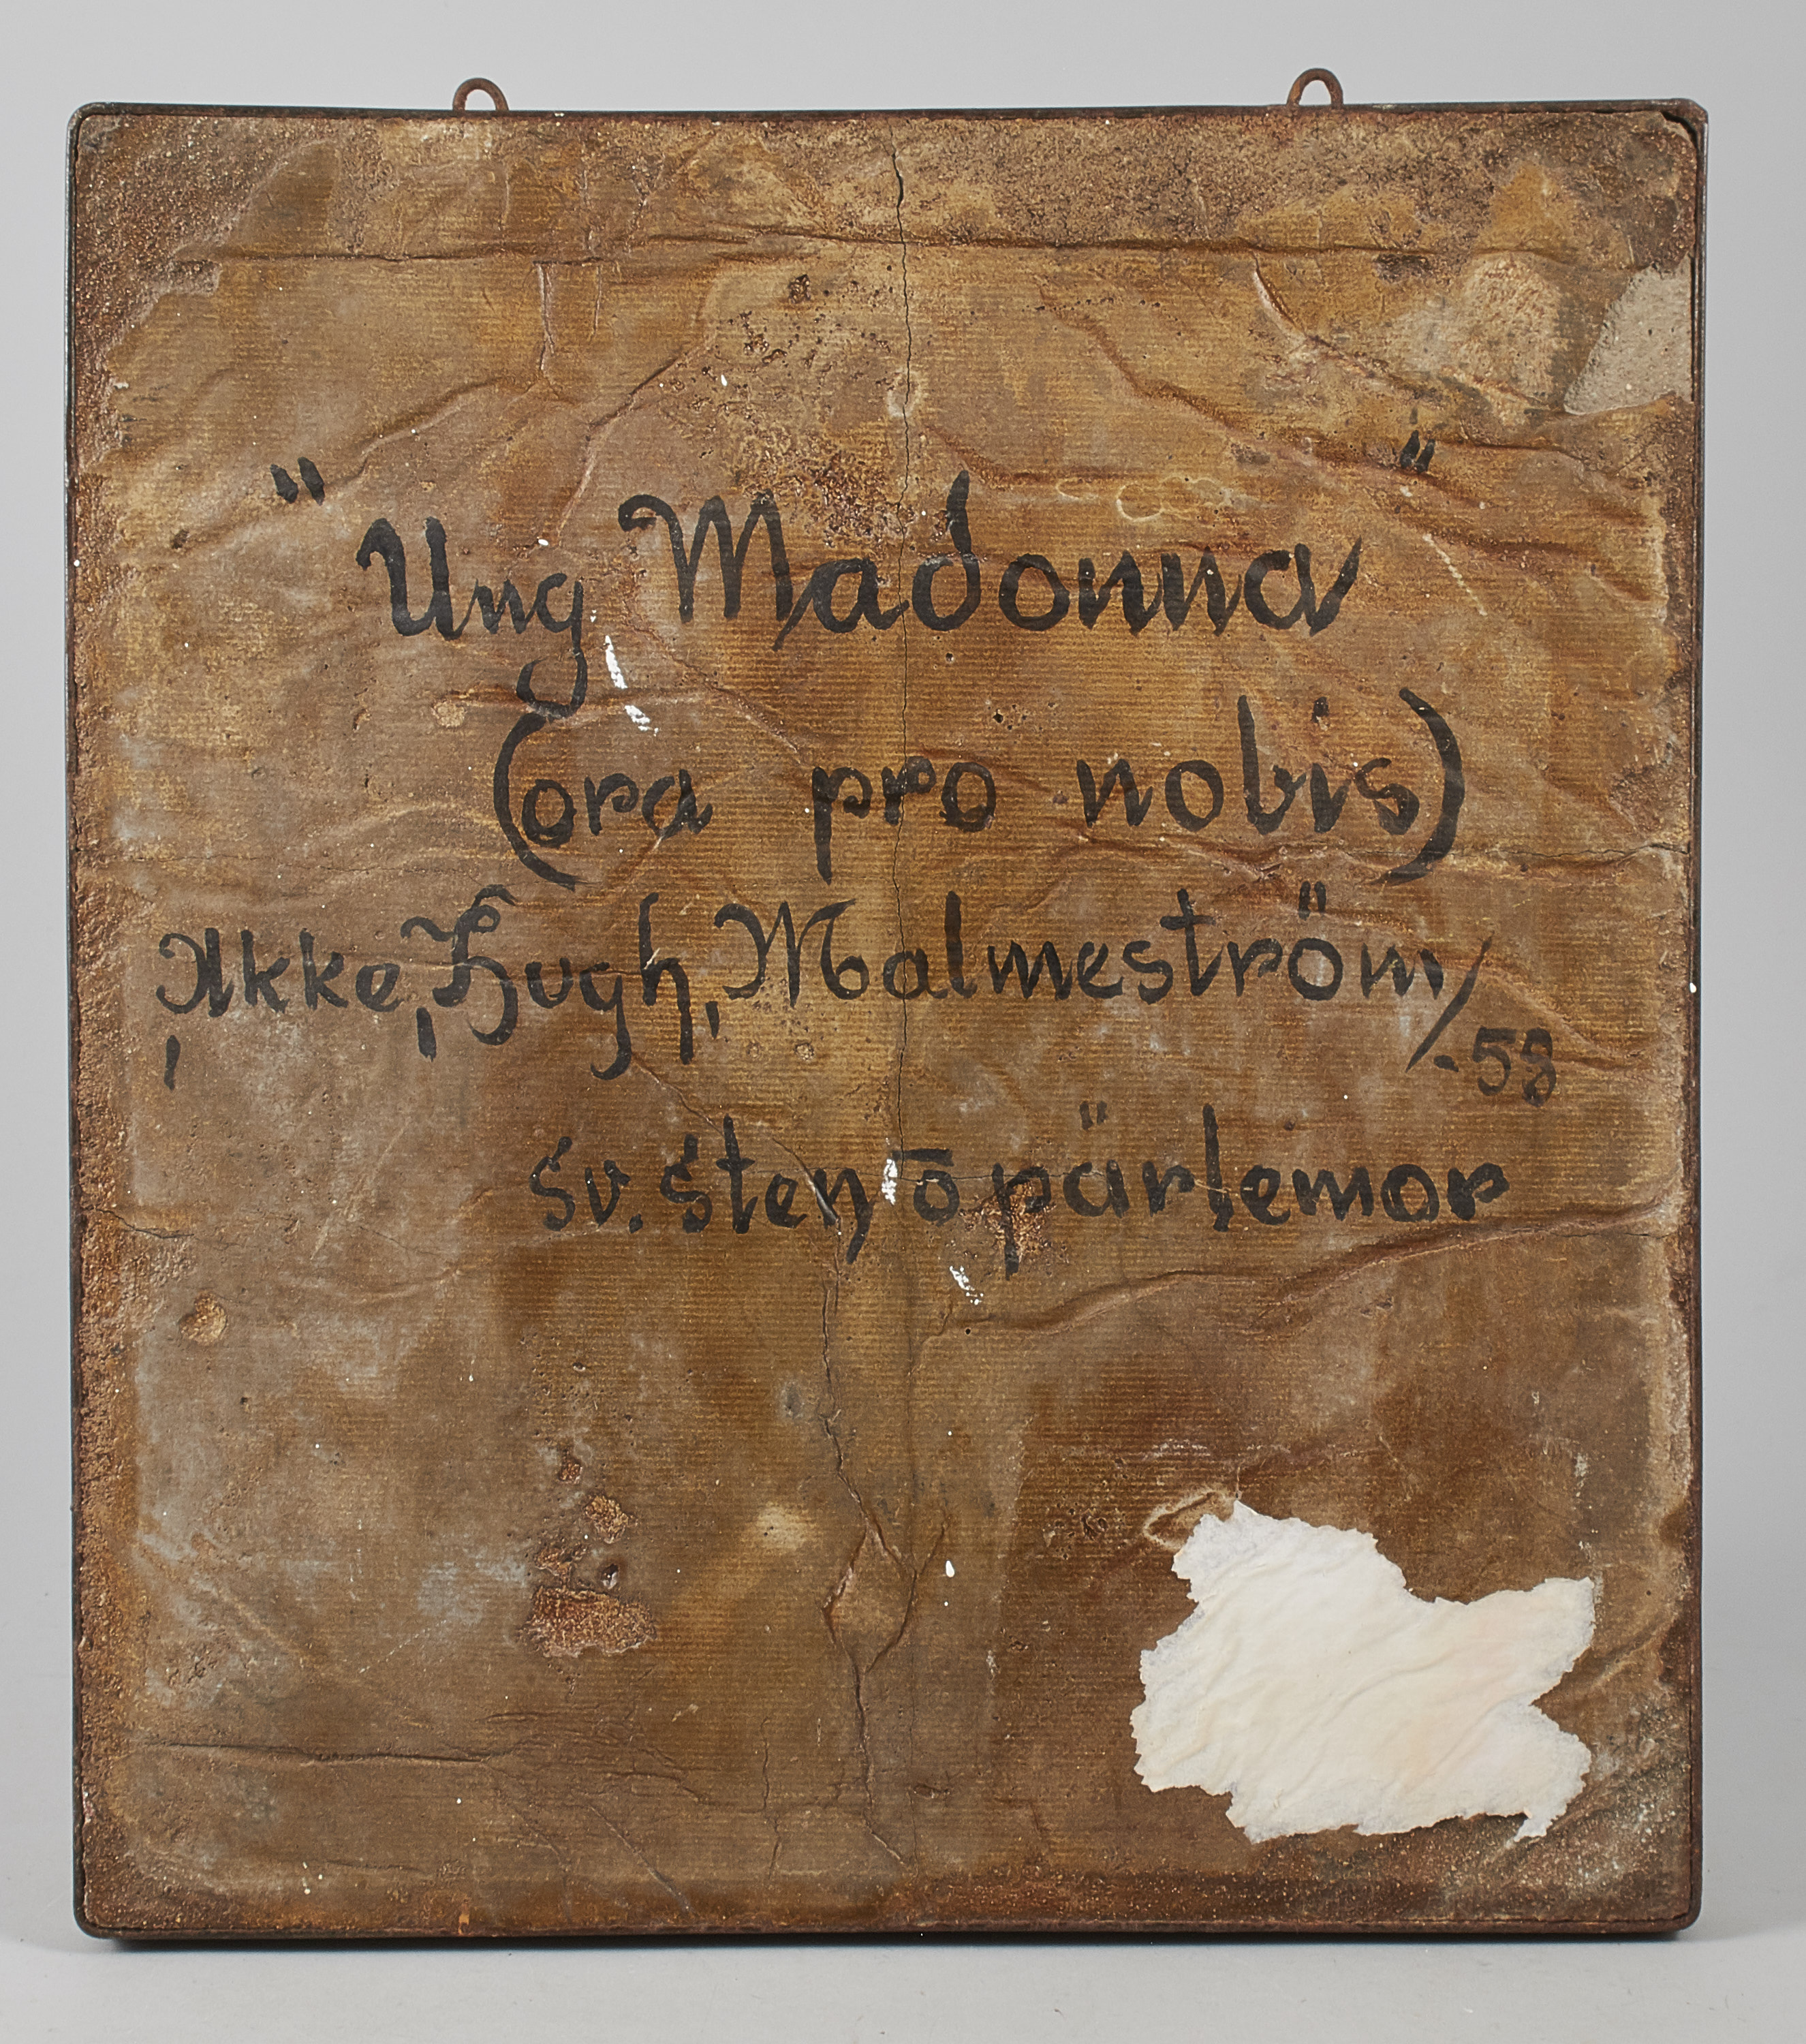 "Ung Madonna"
(ora pro nobis)
Akke, Hugh, Malmeström/
-58
Sv. Sten ō pärlemor